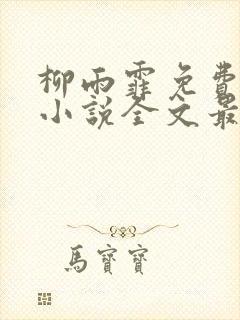 柳雨霏免費
小說全文最
馬寶寶